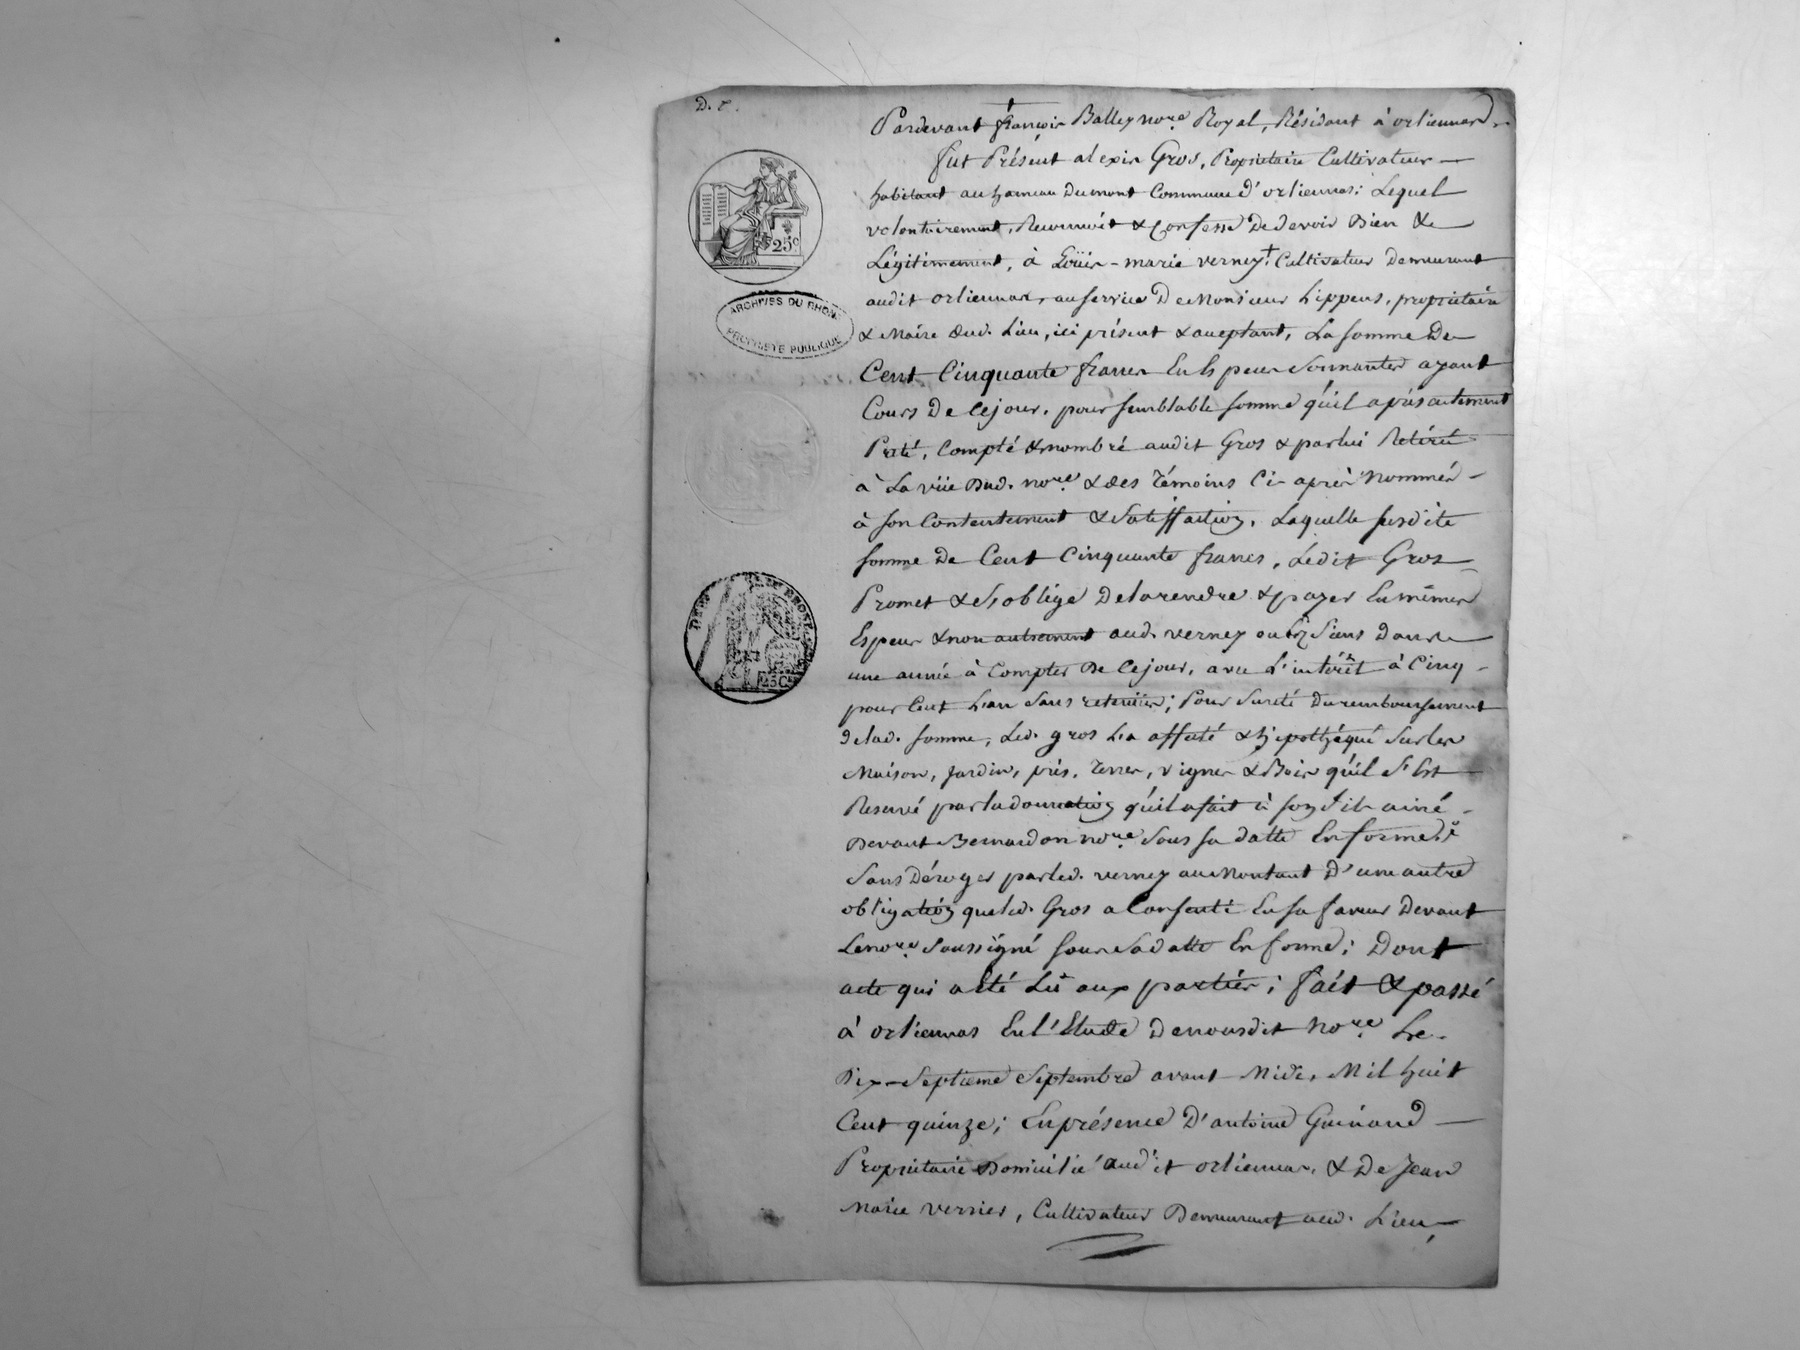 D. r.
Pardevant françois Balley no.re Royal, Résidant à orliennas.
fut Présent alexis Gros, Propriétaire Cultivateur
habitant au hameau Dumont Commune d'orliennas; Lequel
volontairement, Reconnoit & Confesse De devoir Bien &
Légitimement, à Loüis-marie verney † Cultivateur Demeurant
audit orliennas, au service De Monsieur Lippens, propriétaire
& Maire dud. Lieu, ici présent & acceptant, La somme De
Cent Cinquante francs En Especes Sonnantes ayant
Cours De Cejour, pour semblable somme qu'il a présentement
Preté, Compté & nombré audit Gros & par lui Retiré
à La vüe Dud. no.re & des Témoins Ci-après Nommés
à son Contentement & Satisfaction, Laquelle susdite
somme De Cent Cinquante francs, Ledit Gros
Promet & S'oblige De la rendre & payer En mêmes
Especes & non autrement aud. verney ou Es Siens Dans
une année à Compter De Cejour, avec L'intérêt à Cinq
pour Cent L'an Sans retenüe; Pour Sureté Du remboursement
De lad. somme, Led. gros L'a affecté & hipothéqué Sur les
Maison, Jardin, prés, Terres, vignes & Bois qu'il S'Est
Reservé par la donnation qu'il a fait à son fils ainé
Devant Bernardon no.re Sous sa datte En forme,
Sans Déroger par led. verney au Montant D'une autre
obligation que led. Gros a Consenti En sa faveur Devant
Le no.re Soussigné sous Sa datte En forme; Dont
acte qui a Eté Lû aux parties; fait & passé
à orliennas En l'Etude De nousdit No.re Le
Dix-Septieme Septembre avant Midi, Mil huit
Cent quinze; En présence D'antoine Guinand
Propriétaire Domicilié audit orliennas, & De Jean
Marie verrier, Cultivateur Demeurant aud. Lieu
25c
ARCHIVES DU RHONE
PROPRIETE PUBLIQUE
25C